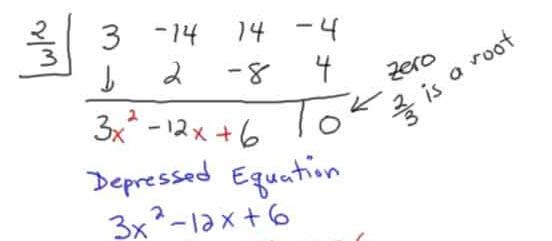 2/3 | 3 -14 14 -4
↓ 2 -8 4
3x² -12x +6 | 0
zero
2/3 is a root
Depressed Equation
3x² -12x +6